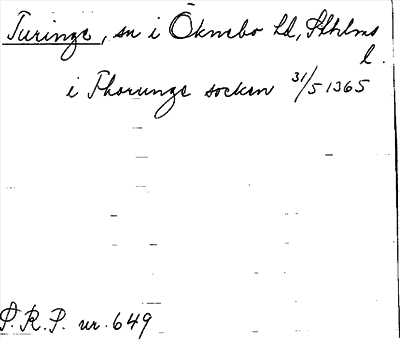 Turinge, sn i Öknebo hd, Sthlms
l.
i Thorunge socken 31/5 1365
P.R.P. nr. 649